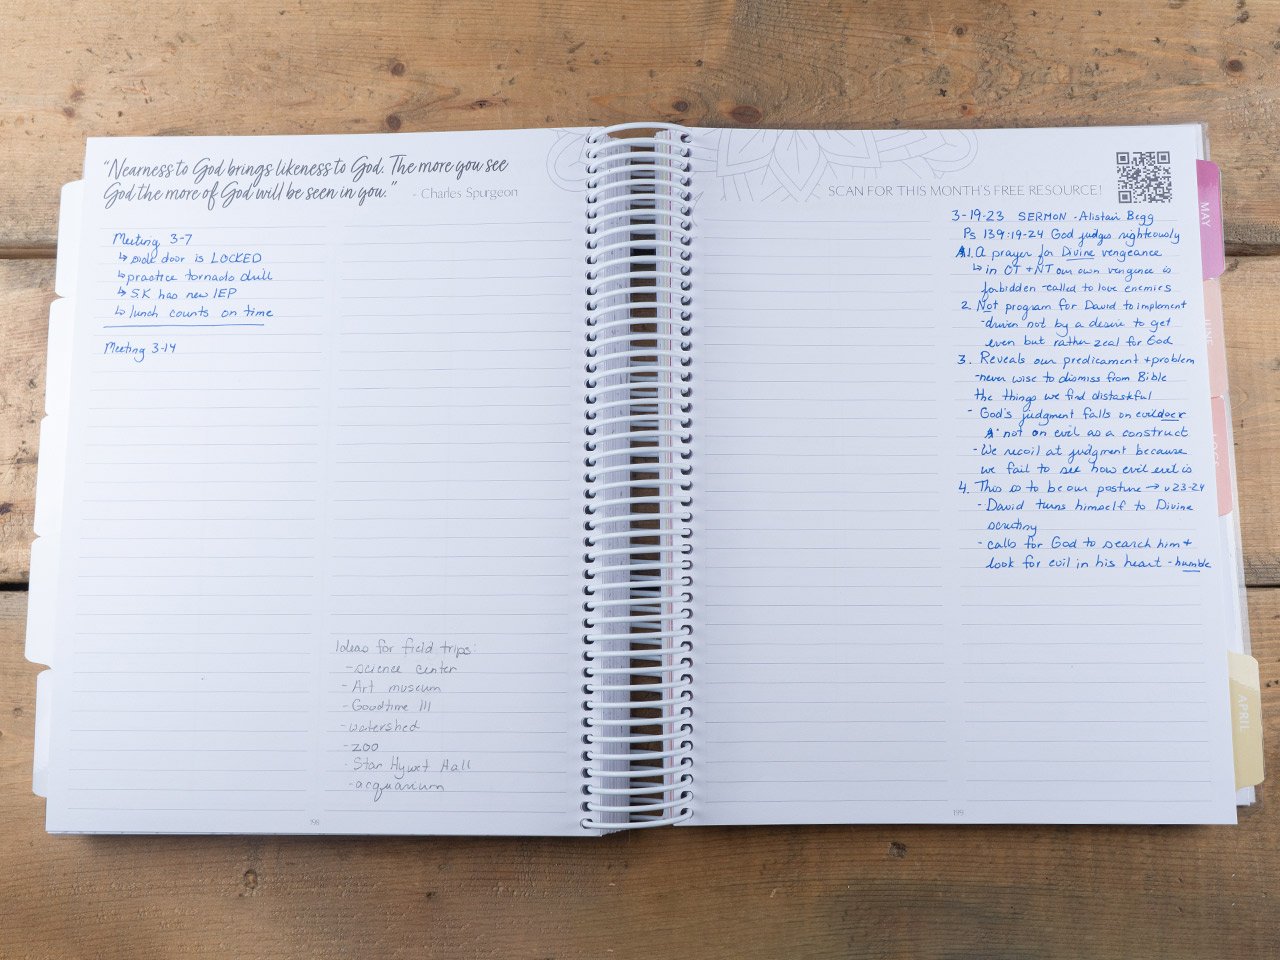 "Nearness to God brings likeness to God. The more you see
God the more of God will be seen in you." - Charles Spurgeon
Meeting 3-7
↳ side door is LOCKED
↳ practice tornado drill
↳ S.K has new IEP
↳ lunch counts on time
Meeting 3-14
Ideas for field trips:
- science center
- Art museum
- Goodtime III
- watershed
- zoo
- Stan Hywet Hall
- acquarium
198
SCAN FOR THIS MONTH'S FREE RESOURCE!
3-19-23 SERMON - Alistair Begg
Ps 139:19-24 God judges righteously
1. A prayer for Divine vengeance
↳ in OT + NT our own vengence is
forbidden - called to love enemies
2. Not program for David to implement
- driven not by a desire to get
even but rather zeal for God
3. Reveals our predicament + problem
- never wise to dismiss from Bible
the things we find distaskful
- God's judgment falls on evildoer
not on evil as a construct
- We recoil at judgment because
we fail to see how evil evil is
4. This is to be our posture → v 23-24
- David turns himself to Divine
scrutiny
- calls for God to search him +
look for evil in his heart - humble
199
MAY
JUNE
APRIL